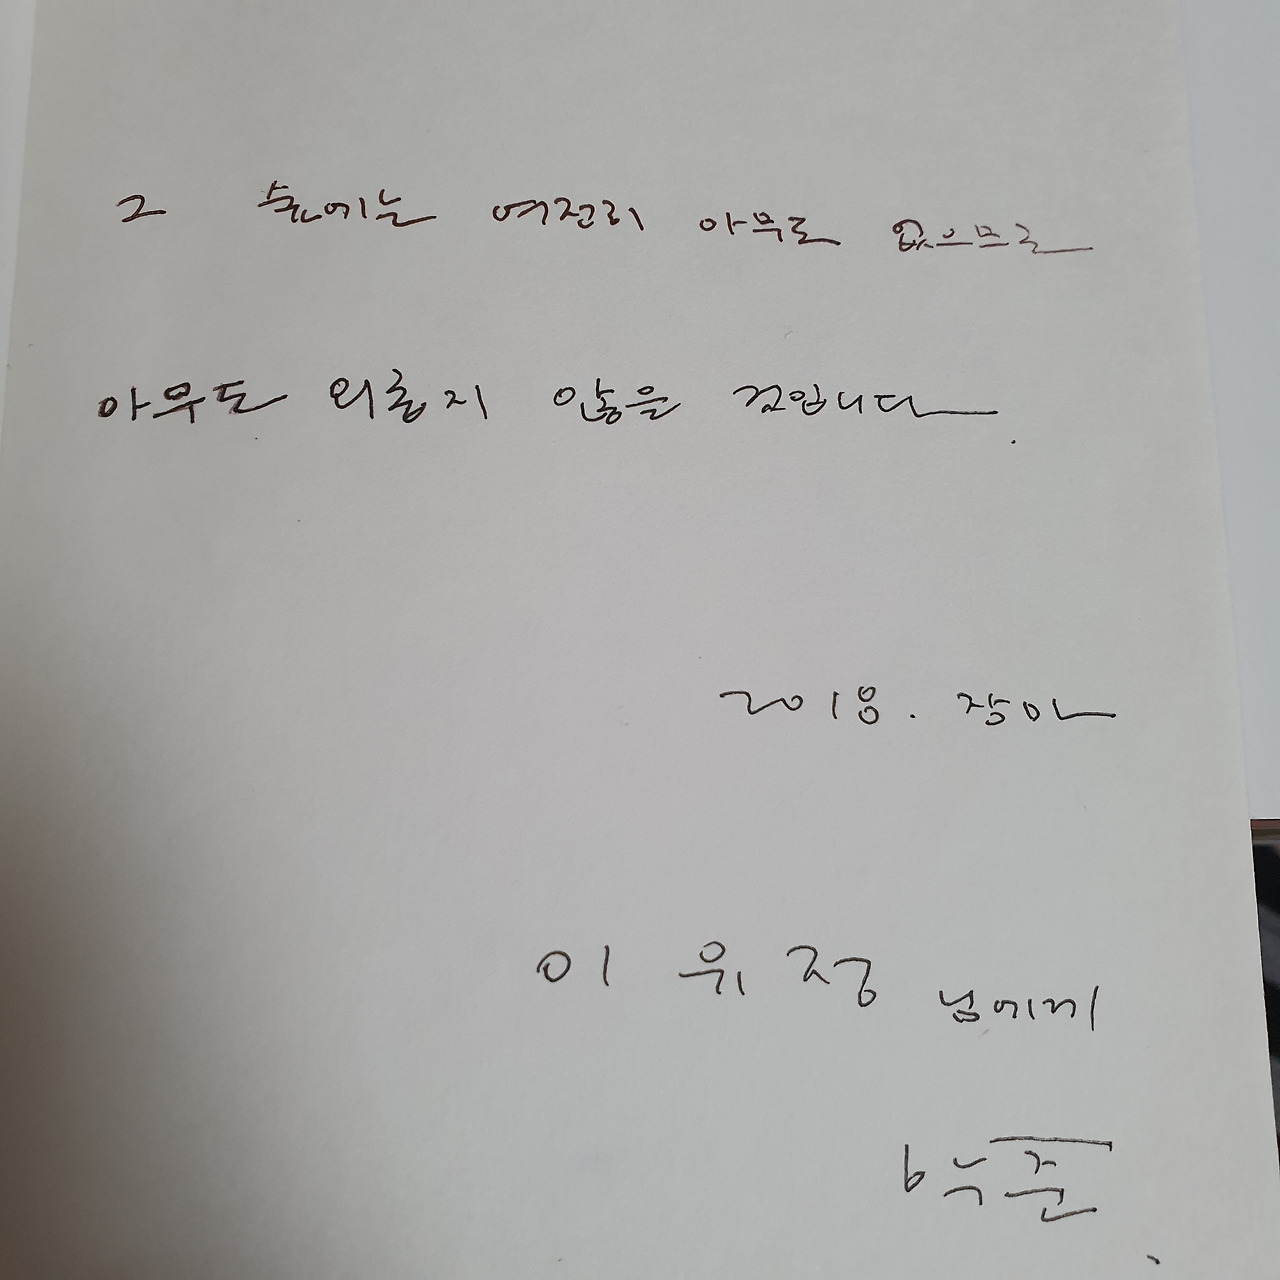 그 숲에는 여전히 아무도 없으므로
아무도 외롭지 않을 것입니다.
2018. 장마
이 위 정 님에게
박준